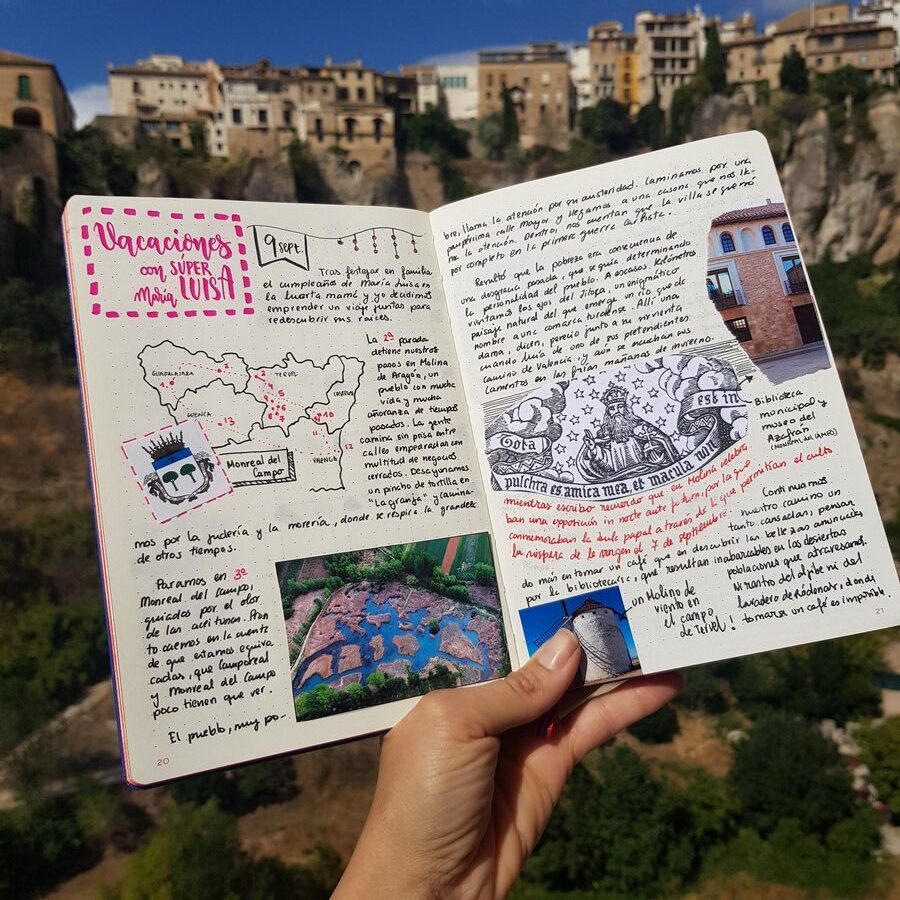 Vacaciones
con SÚPER
María LUISA
9 sept.
Tras festejar en familia
el cumpleaños de María Luisa en
la huerta mamá y yo decidimos
emprender un viaje juntas para
redescubrir sus raíces.
GUADALAJARA
TERUEL
CUENCA
CASTELLÓN
VALENCIA
1
2
5
6
7
10
11
12
13
Monreal del
Campo
La 2ª parada
detiene nuestros
pasos en Molina
de Aragón, un
pueblo con mucha
vida y mucha
añoranza de tiempos
pasados. La gente
camina sin prisa entre
calles empedradas con
multitud de negocios
cerrados. Desayunamos
un pincho de tortilla en
"La granja" y camina-
mos por la judería y la morería, donde se respira la grandeza
de otros tiempos.
Paramos en 3ª
Monreal del Campo,
guiadas por el olor
de las aceitunas. Pron
to caemos en la cuenta
de que estamos equivo
cadas, que Camporeal
y Monreal del Campo
poco tienen que ver.
El pueblo, muy po-
20
bre, llama la atención por su austeridad. Caminamos por una
paupérrima calle Mayor y llegamos a una casona que nos lla-
ma la atención. Dentro, nos cuentan que la villa se quemó
por completo en la primera guerra carlista.
Resultó que la pobreza era consecuencia de
una desgracia pasada, que seguía determinando
la personalidad del pueblo. A escasos kilómetros
visitamos los ojos del Jiloca, un enigmático
paisaje natural del que emerge un río que da
nombre a una comarca turolense. Allí una
dama, dicen, pereció junto a su sirvienta
cuando huía de uno de sus pretendientes
camino de Valencia, y aún se escuchan sus
lamentos en las frías mañanas de invierno.
Tota
pulchra es amica mea, et macula non
est in
Biblioteca
municipal y
museo del
Azafrán
(MONREAL DEL CAMPO)
mientras escribo recuerdo que en Molina celebra
ban una exposición in nocte ante festum, por la que
conmemoraban la bula papal a través de la que permitían el culto
la víspera de la virgen el 7 de septiembre.
Continuamos
nuestro camino un
tanto cansadas; pensan
do más en tomar un café que en descubrir las bellezas anunciadas
por la bibliotecaria, que resultan inabarcables en las desiertas
poblaciones que atravesamos.
Ni rastro del aljibe ni del
lavadero de Ródenas, donde
tomarse un café es imposible.
un Molino de
viento en
el campo
de Teruel!
21